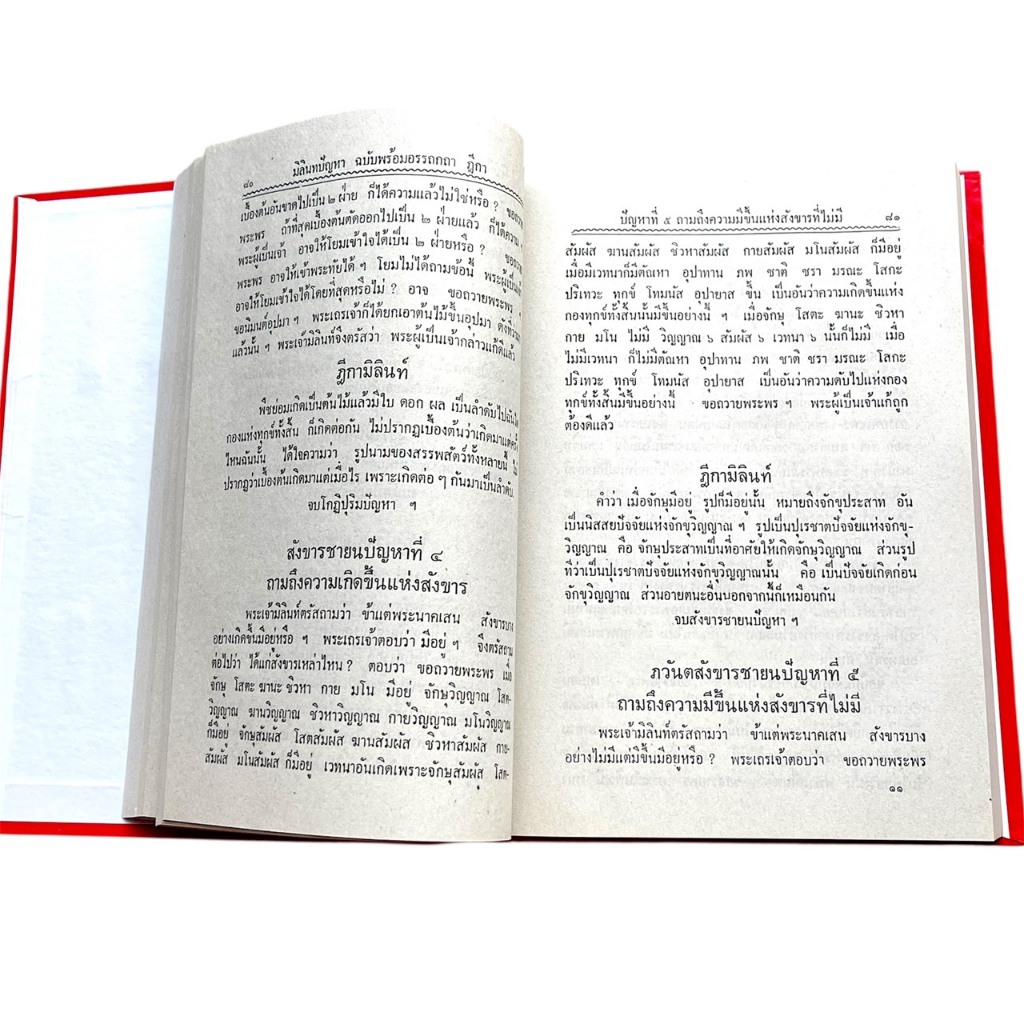 ๘๐ มิลินทปัญหา ฉบับพร้อมอรรถกถา ฎีกา
เบื้องต้นอันขาดไปเป็น ๒ ฝ่าย ก็ได้ความแล้วไม่ใช่หรือ ?
พระพร ถ้าที่สุดเบื้องต้นตัดออกไปเป็น ๒ ฝ่ายแล้ว ก็ได้ความ
พระผู้เป็นเจ้า อาจให้โยมเข้าใจได้เป็น ๒ ฝ่ายหรือ ?
พระพร อาจให้เข้าพระทัยได้ ฯ โยมไม่ได้ถามข้อนี้
อาจให้โยมเข้าใจได้โดยที่สุดหรือไม่ ? อาจ ขอถวายพระพร ฯ
ขอนิมนต์อุปมา ฯ พระเถรเจ้าก็ได้ยกเอาต้นไม้ขึ้นอุปมา
แล้วนั้น ฯ พระเจ้ามิลินท์จึงตรัสว่า พระผู้เป็นเจ้ากล่าวแก้ดีแล้ว
ฎีกามิลินท์
พืชย่อมเกิดเป็นต้นไม้แล้วมีใบ ดอก ผล เป็นลำดับไป
กองแห่งทุกข์ทั้งสิ้น ก็เกิดต่อกัน ไม่ปรากฏเบื้องต้นว่าเกิดมาแต่ครั้ง
ไหนฉันนั้น ได้ใจความว่า รูปนามของสรรพสัตว์ทั้งหลายนี้
ปรากฏว่าเบื้องต้นเกิดมาแต่เมื่อไร เพราะเกิดต่อ ๆ กันมาเป็นลำดับ
จบโกฏิปุริมปัญหา ฯ
สังขารชายนปัญหาที่ ๔
ถามถึงความเกิดขึ้นแห่งสังขาร
พระเจ้ามิลินท์ตรัสถามว่า ข้าแต่พระนาคเสน สังขารบาง
อย่างเกิดขึ้นมีอยู่หรือ ฯ พระเถรเจ้าตอบว่า มีอยู่ ฯ จึงตรัสถาม
ต่อไปว่า ได้แก่สังขารเหล่าไหน ? ตอบว่า ขอถวายพระพร เมื่อ
จักษุ โสตะ ฆานะ ชิวหา กาย มโน มีอยู่ จักษุวิญญาณ โสต-
วิญญาณ ฆานวิญญาณ ชิวหาวิญญาณ กายวิญญาณ มโนวิญญาณ
ก็มีอยู่ จักษุสัมผัส โสตสัมผัส ฆานสัมผัส ชิวหาสัมผัส กาย-
สัมผัส มโนสัมผัส ก็มีอยู่ เวทนาอันเกิดเพราะจักษุสัมผัส โสต-
ปัญหาที่ ๕ ถามถึงความมีขึ้นแห่งสังขารที่ไม่มี ๘๑
สัมผัส ฆานสัมผัส ชิวหาสัมผัส กายสัมผัส มโนสัมผัส ก็มีอยู่
เมื่อมีเวทนาก็มีตัณหา อุปาทาน ภพ ชาติ ชรา มรณะ โสกะ
ปริเทวะ ทุกข์ โทมนัส อุปายาส ขึ้น เป็นอันว่าความเกิดขึ้นแห่ง
กองทุกข์ทั้งสิ้นนั้นมีขึ้นอย่างนี้ ฯ เมื่อจักษุ โสตะ ฆานะ ชิวหา
กาย มโน ไม่มี วิญญาณ ๖ สัมผัส ๖ เวทนา ๖ นั้นก็ไม่มี เมื่อ
ไม่มีเวทนา ก็ไม่มีตัณหา อุปาทาน ภพ ชาติ ชรา มรณะ โสกะ
ปริเทวะ ทุกข์ โทมนัส อุปายาส เป็นอันว่าความดับไปแห่งกอง
ทุกข์ทั้งสิ้นมีขึ้นอย่างนี้ ขอถวายพระพร ฯ พระผู้เป็นเจ้าแก้ถูก
ต้องดีแล้ว
ฎีกามิลินท์
คำว่า เมื่อจักษุมีอยู่ รูปก็มีอยู่นั้น หมายถึงจักขุประสาท อัน
เป็นนิสสยปัจจัยแห่งจักขุวิญญาณ ฯ รูปเป็นปุเรชาตปัจจัยแห่งจักขุ-
วิญญาณ คือ จักษุประสาทเป็นที่อาศัยให้เกิดจักษุวิญญาณ ส่วนรูป
ที่ว่าเป็นปุเรชาตปัจจัยแห่งจักขุวิญญาณนั้น คือ เป็นปัจจัยเกิดก่อน
จักขุวิญญาณ ส่วนอายตนะอื่นนอกจากนี้ก็เหมือนกัน
จบสังขารชายนปัญหา ฯ
ภวันตสังขารชายนปัญหาที่ ๕
ถามถึงความมีขึ้นแห่งสังขารที่ไม่มี
พระเจ้ามิลินท์ตรัสถามว่า ข้าแต่พระนาคเสน สังขารบาง
อย่างไม่มีแต่มีขึ้นมีอยู่หรือ ? พระเถรเจ้าตอบว่า ขอถวายพระพร
๑๑